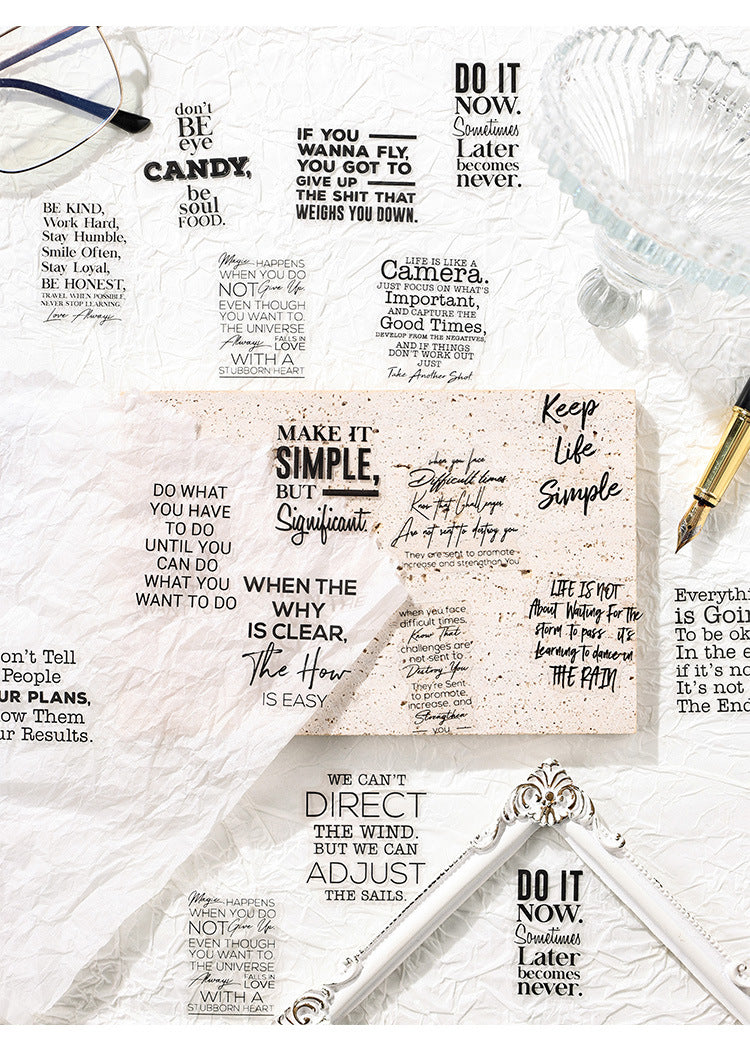 DO IT
NOW.
Sometimes
Later
becomes
never.
don't
BE
eye
CANDY,
be
soul
FOOD.
IF YOU
WANNA FLY,
YOU GOT TO
GIVE UP
THE SHIT THAT
WEIGHS YOU DOWN.
BE KIND,
Work Hard,
Stay Humble,
Smile Often,
Stay Loyal,
BE HONEST,
TRAVEL WHEN POSSIBLE,
NEVER STOP LEARNING.
Love Always
Magic HAPPENS
WHEN YOU DO
NOT Give Up
EVEN THOUGH
YOU WANT TO.
THE UNIVERSE
Always FALLS IN
LOVE
WITH A
STUBBORN HEART
LIFE IS LIKE A
Camera.
JUST FOCUS ON WHAT'S
Important,
AND CAPTURE THE
Good Times,
DEVELOP FROM THE NEGATIVES,
AND IF THINGS
DON'T WORK OUT
JUST
Take Another Shot.
Keep
Life
Simple
MAKE IT
SIMPLE,
BUT
Significant.
when you face
Difficult times
Know that Challenges
Are not sent to destroy you
They are sent to promote
increase and strengthan You
DO WHAT
YOU HAVE
TO DO
UNTIL YOU
CAN DO
WHAT YOU
WANT TO DO
WHEN THE
WHY
IS CLEAR,
The How
IS EASY
when you face
difficult times,
Know That
challenges are
not sent to
Destroy You
They're Sent
to promote,
increase, and
Strengthen
you
LIFE IS NOT
About Waiting For The
storm To pass it's
Learning to dance in
THE RAIN
Everythi
is Goin
To be ok
In the e
if it's no
It's not
The End
on't Tell
People
UR PLANS,
ow Them
ur Results.
WE CAN'T
DIRECT
THE WIND.
BUT WE CAN
ADJUST
THE SAILS.
Magic HAPPENS
WHEN YOU DO
NOT Give Up
EVEN THOUGH
YOU WANT TO.
THE UNIVERSE
Always FALLS IN
LOVE
WITH A
STUBBORN HEART
DO IT
NOW.
Sometimes
Later
becomes
never.